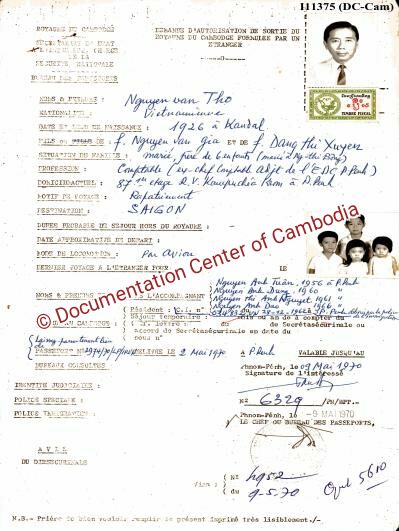 111375 (DC-Cam)
ROYAUME DU CAMBODGE
DEMANDE D'AUTORISATION DE SORTIE DU
ROYAUME DU CAMBODGE FORMULEE PAR UN
ETRANGER
SECRETARIAT D'ETAT
SECURITE NATIONALE
BUREAU DES PASSEPORTS
TIMBRE FISCAL
NOMS & PRENOMS : Nguyen van Tho
NATIONALITE : Vietnamienne
DATE ET LIEU DE NAISSANCE : 1926 à Kandal
FILS ou FILLE DE : f. Nguyen van gia ET DE f. Dang thi Xuyen
SITUATION DE FAMILLE : marié, père de 6 enfants
PROFESSION : Comptable (ex-chef Comptable Adjt de l'EDC P. Penh)
DOMICILE ACTUEL : 87 etage R.V. Kampuchea Krom à P. Penh
MOTIF DE VOYAGE : Rapatriement
DESTINATION : SAIGON
DUREE PROBABLE DE SEJOUR HORS DU ROYAUME :
DATE APPROXIMATIVE DE DEPART :
MODE DE LOCOMOTION : Par Avion
DERNIER VOYAGE A L'ETRANGER POUR LE
© Documentation Center of Cambodia
Nguyen Anh Tuân, 1956 à P. Penh
Nguyen Anh Dung, 1960 "
NOMS & PRENOMS L'ACCOMPAGNANT Nguyen thi Anh Nguyet 1961 "
Nguyen Anh Dao 1966 "
Résident : C.I. n°
Séjour temporaire :
PASSEPORT N° DELIVRE LE 2 Mai 1970 A P. Penh VALABLE JUSQU'AU
BUREAUX CONSULTES
P. Penh le 09 Mai 1970
Signature de l'intéressé
IDENTITE JUDICIAIRE :
N° 6329
POLICE SPECIALE :
Phnom-Penh, le -9 MAI 1970
POLICE IMMIGRATION :
LE CHEF DU BUREAU DES PASSEPORTS,
AVIS
DU DIRSECURINALE
Visa : N° 4952
du 9-5-70
N.B.- Prière de bien vouloir remplir le présent imprimé très lisiblement./-